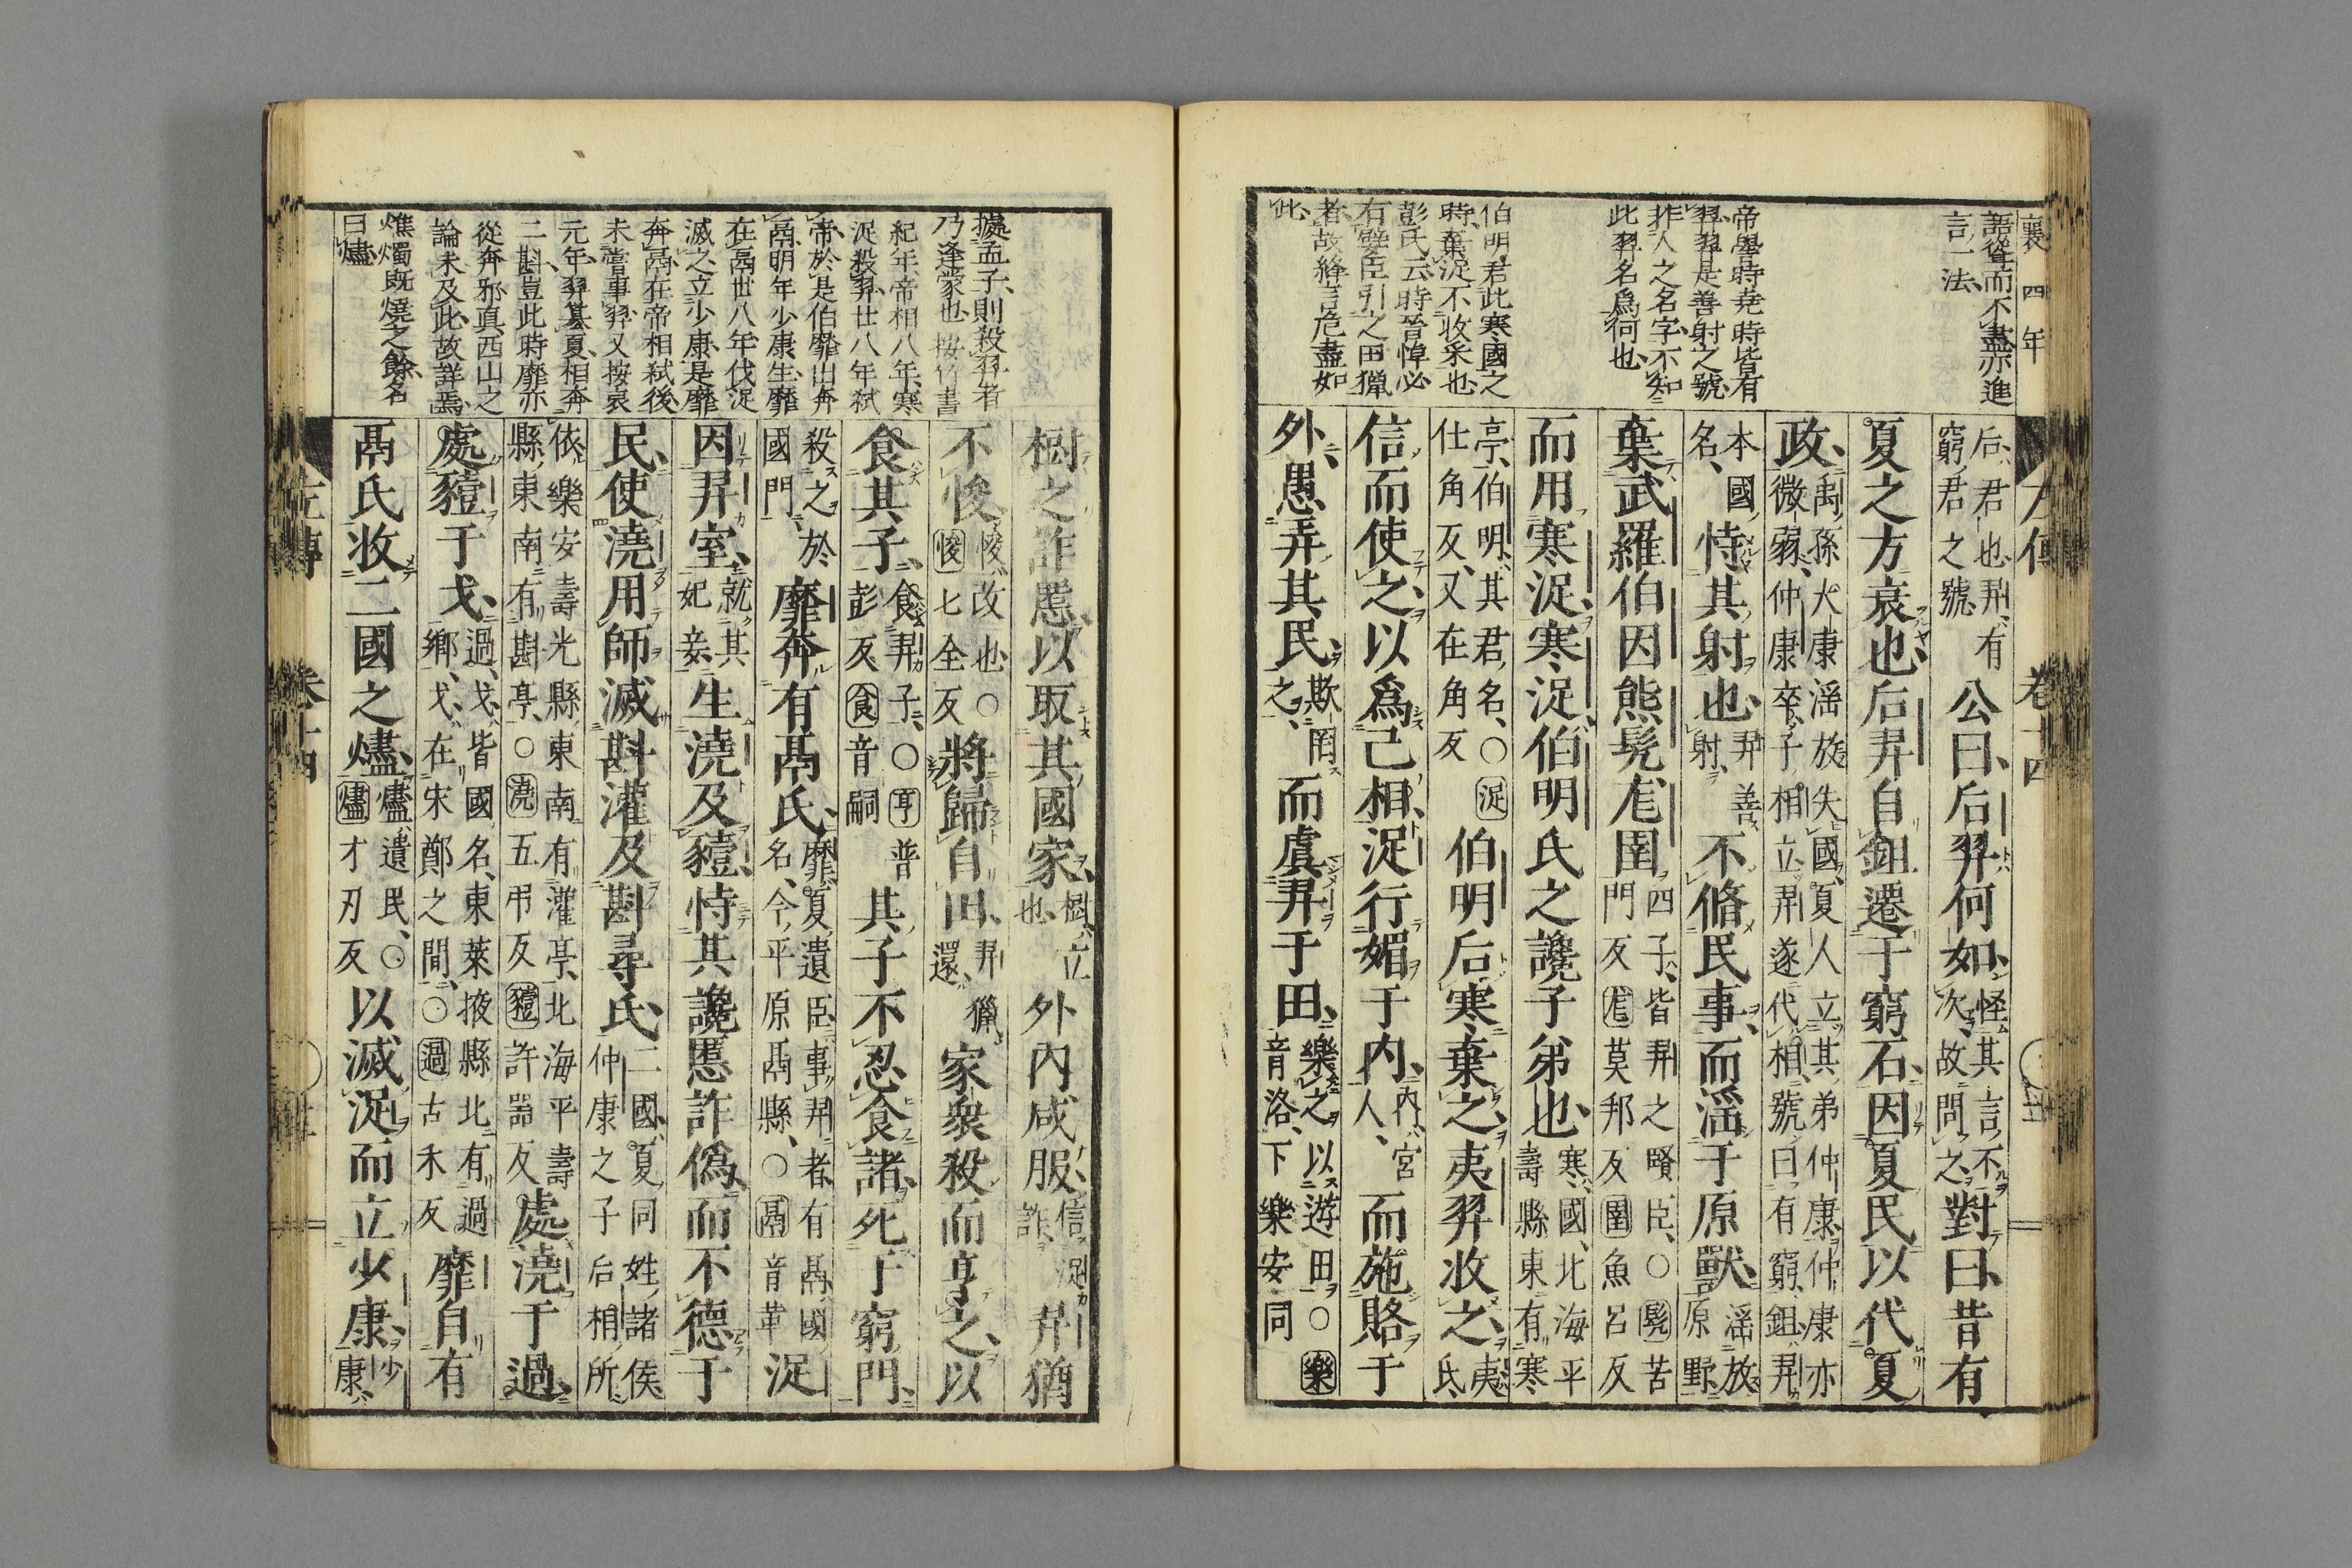 襄四年
語從耳而不盡亦進
言一法
帝嚳時堯時皆有
羿羿是善射之號
非人之名字不知
此羿名爲何也
伯明君此寒國之
時棄浞不收采也
彭氏云時晉悼必
有嬖臣引之田獵
者故絳言危盡如
此
左傳 卷十四
后君也羿有
窮君之號
公曰后羿何如
怪其言不
次故問之
對曰昔有
夏之方衰也后羿自鉏遷于窮石因夏民以代夏
政
禹孫太康淫放失國夏人立其弟仲康仲康亦
微弱仲康卒子相立羿遂代相號曰有窮鉏羿
本國
名
恃其射也
羿善
射
不脩民事而淫于原獸
淫放
原野
棄武羅伯因熊髡尨圉
四子皆羿之賢臣○髡苦
門反尨莫邦反圉魚呂反
而用寒浞寒浞伯明氏之讒子弟也
寒國北海平
壽縣東有寒
亭伯明其君名○浞
仕角反又在角反
伯明后寒棄之夷羿收之
夷
氏
信而使之以爲己相浞行媚于內
內宮
人
而施賂于
外愚弄其民
欺罔
之
而虞羿于田
樂之以遊田○樂
音洛下樂安同
據孟子則殺羿者
乃逢蒙也按竹書
紀年帝相八年寒
浞殺羿廿八年弑
帝於是伯靡出奔
鬲明年少康生靡
在鬲廿八年伐浞
滅之立少康是靡
奔鬲在帝相弑後
未嘗事羿又按哀
元年羿簒夏相奔
二斟豈此時靡亦
從奔邪真西山之
論未及此故詳焉
燋燭既燒之餘名
曰燼
樹之詐慝以取其國家
樹立
也
外內咸服
信浞
詐
羿猶
不悛
悛改也○
悛七全反
將歸自田
羿獵
還
家衆殺而亨之以
食其子
食羿子○亨普
彭反食音嗣
其子不忍食諸死于窮門
殺之於
國門
靡奔有鬲氏
靡夏遺臣事羿者有鬲國
名今平原鬲縣○鬲音革
浞
因羿室
就其
妃妾
生澆及豷恃其讒慝詐僞而不德于
民使澆用師滅斟灌及斟尋氏
二國夏同姓諸侯
仲康之子后相所
依樂安壽光縣東南有灌亭北海平壽
縣東南有斟亭○澆五弔反豷許器反
處澆于過
處豷于戈
過戈皆國名東萊掖縣北有過
鄉戈在宋鄭之間○過古禾反
靡自有
鬲氏收二國之燼
燼遺民○
燼才刃反
以滅浞而立少康
少
康
左傳 卷十四